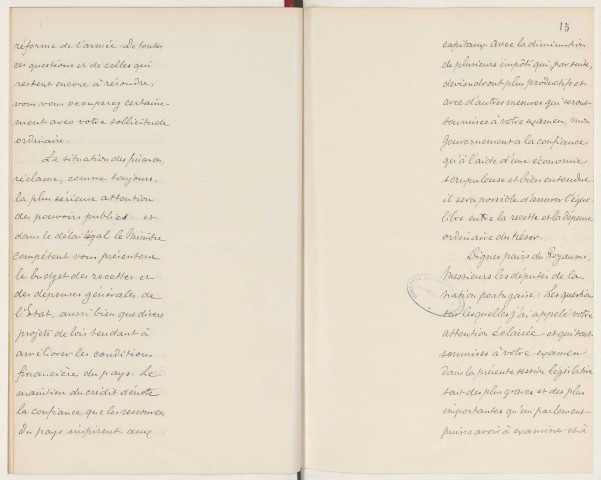 réforme de l'armée. De toutes
ces questions et de celles qui
restent encore à résoudre,
vous vous occuperez certaine-
ment avec votre sollicitude
ordinaire.
La situation des finances
réclame, comme toujours,
la plus sérieuse attention
des pouvoirs publics et
dans le délai légal le Ministre
compétent vous présentera
le budget des recettes et
des dépenses générales de
l'Etat, aussi bien que divers
projets de lois tendant à
améliorer les conditions
financière du pays. Le
maintien du crédit dénote
la confiance que les ressources
du pays inspirent aux
15
capitaux. Avec la diminution
de plusieurs impôts qui, par suite,
deviendront plus productifs et
avec d'autres mesures qui seront
soumises à votre examen, mon
Gouvernement a la confiance
qu'à l'aide d'une économie
scrupuleuse et bien entendue
il sera possible d'assurer l'équi-
libre entre la recette et la dépense
ordinaire du trésor.
Dignes pairs du Royaume,
Messieurs les députés de la
nation portugaise: Les questions
sur lesquelles j'ai appelé votre
attention éclairée et qui sont
soumises à votre examen
dans la présente session législative
sont des plus graves et des plus
importantes qu'un parlement
puisse avoir à examiner et à